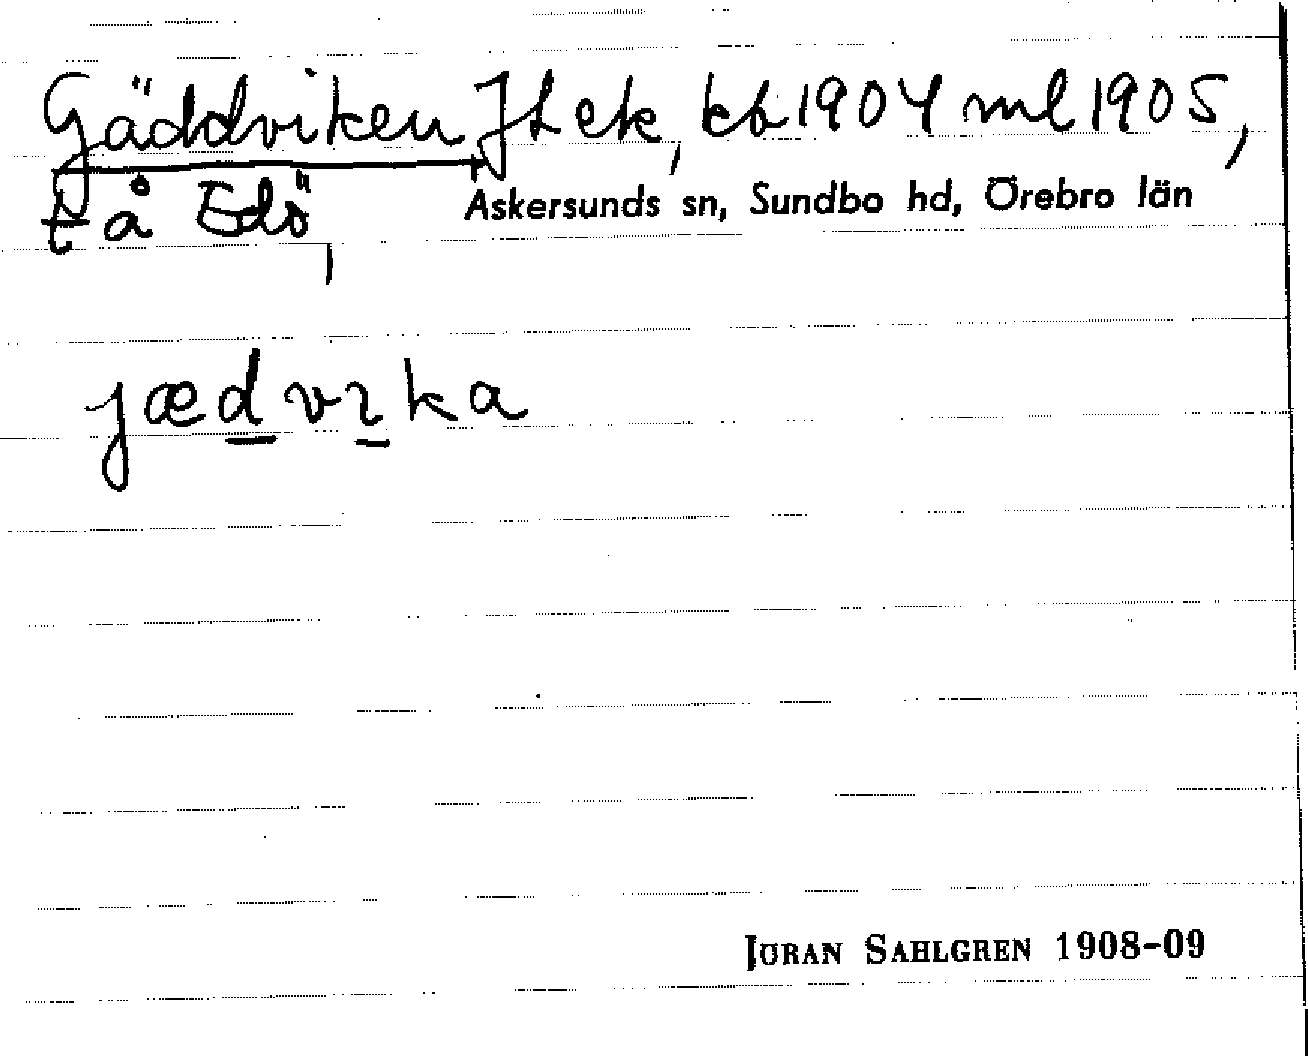 Gäddviken JLek, kb 1904 ml 1905,
t å Edö, Askersunds sn, Sundbo hd, Örebro län
jædvıka
JÖRAN SAHLGREN 1908-09